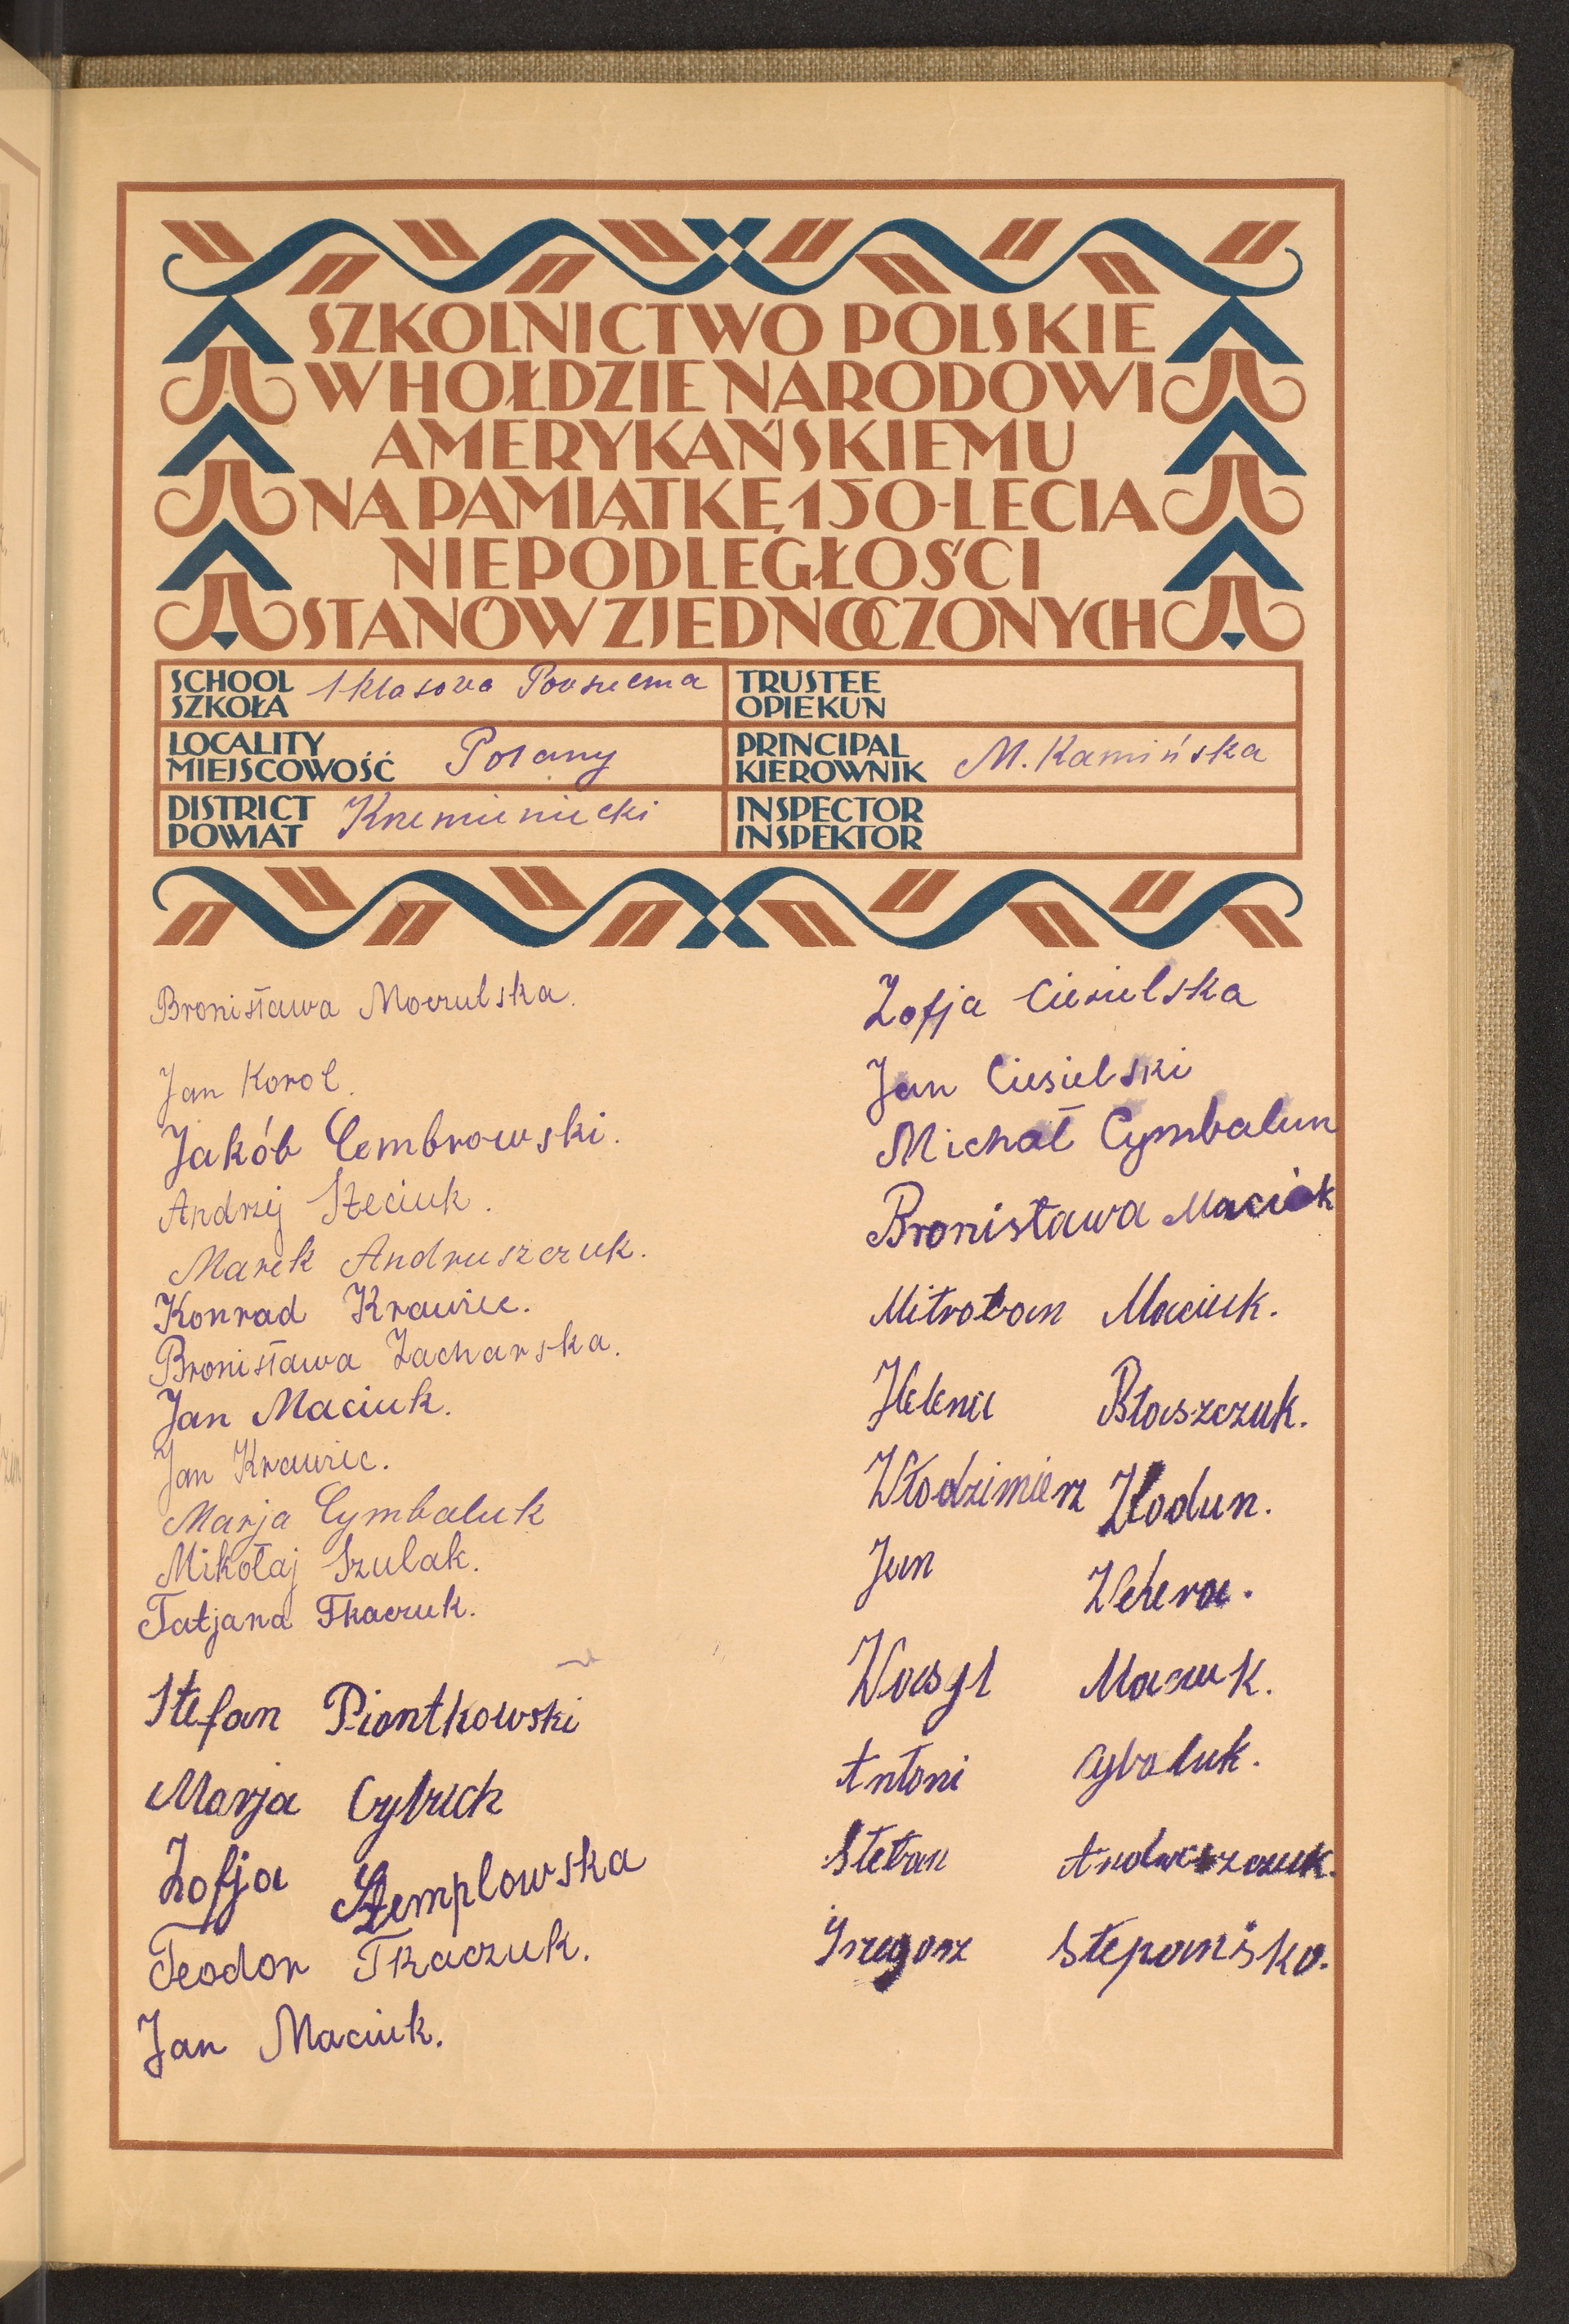 SZKOLNICTWO POLSKIE
W HOŁDZIE NARODOWI
AMERYKAŃSKIEMU
NA PAMIĄTKĘ 150-LECIA
NIEPODLEGŁOŚCI
STANÓW ZJEDNOCZONYCH
SCHOOL
SZKOŁA
1 klasowa
TRUSTEE
OPIEKUN
LOCALITY
MIEJSCOWOŚĆ
PRINCIPAL
KIEROWNIK
M. Kamińska
DISTRICT
POWIAT
Krzemieniecki
INSPECTOR
INSPEKTOR
Bronisława Moczulska.
Jan Korol.
Jakób Cembrowski.
Andrzej Steciuk.
Marek Andruszczuk.
Konrad Krawiec.
Bronisława Zacharska.
Jan Maciuk.
Jan Krawiec.
Marja Cymbaluk
Mikołaj Szulak.
Tatjana Tkaczuk.
Stefan Piontkowski
Marja
Zofja Stemplowska
Teodor Tkaczuk.
Jan Maciuk.
Zofja Ciesielska
Jan Ciesielski
Michał Cymbalun
Bronisława Maciok
Maciuk.
Błaszczuk.
Włodzimierz
Jan
Antoni
Grzegorz